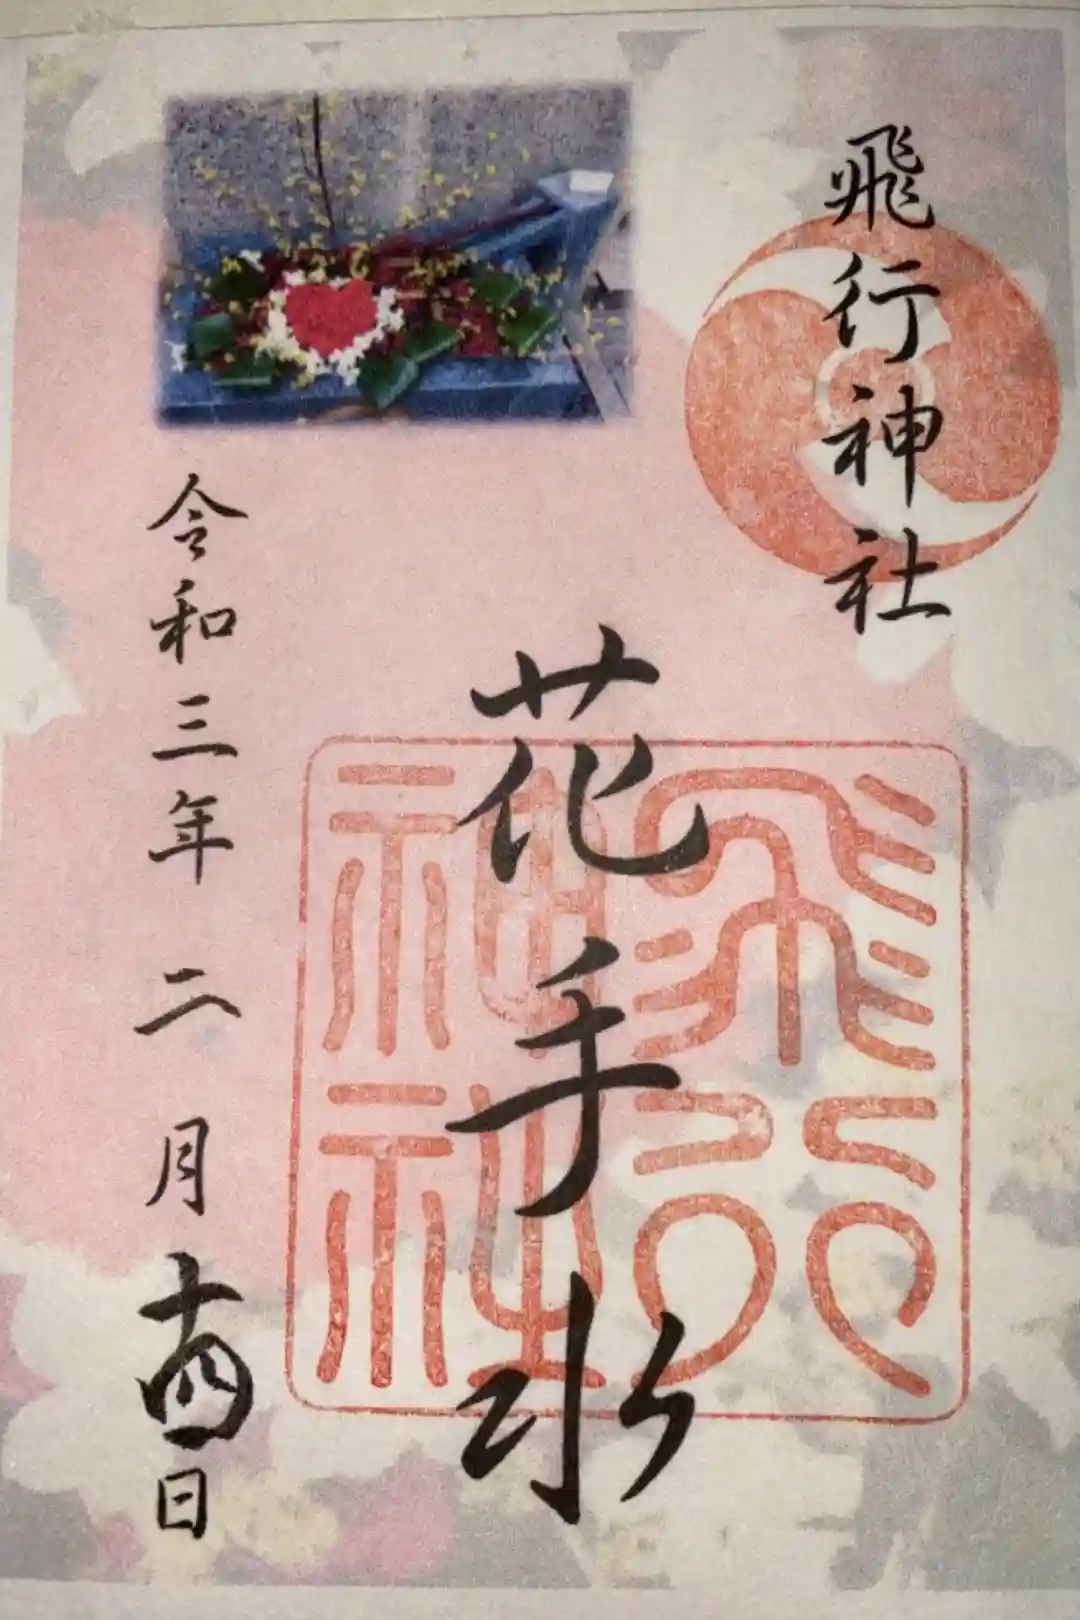 飛行神社
飛行神社
花手水
令和三年 二月十四日